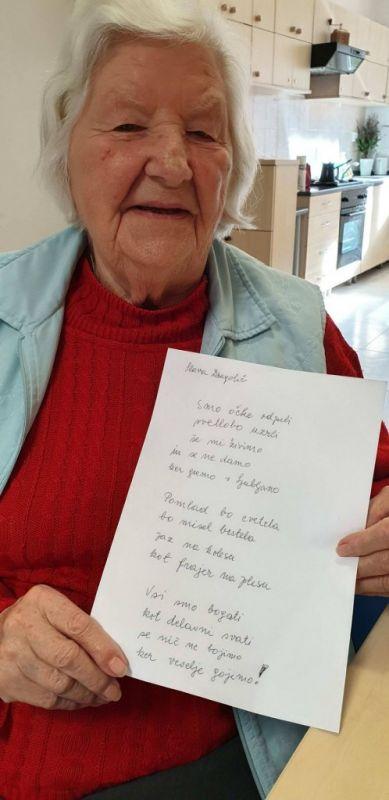 Mara Dragolič
Smo očke odprli
svetlobo uzrli
še mi živimo
in se ne damo
ker gremo v Ljubljano
Pomlad bo cvetela
bo misel bestela
jaz na kolesa
kot frajer na plesa
Vsi smo bogati
kot delavni svati
se nič ne bojimo
ker veselje gojimo!